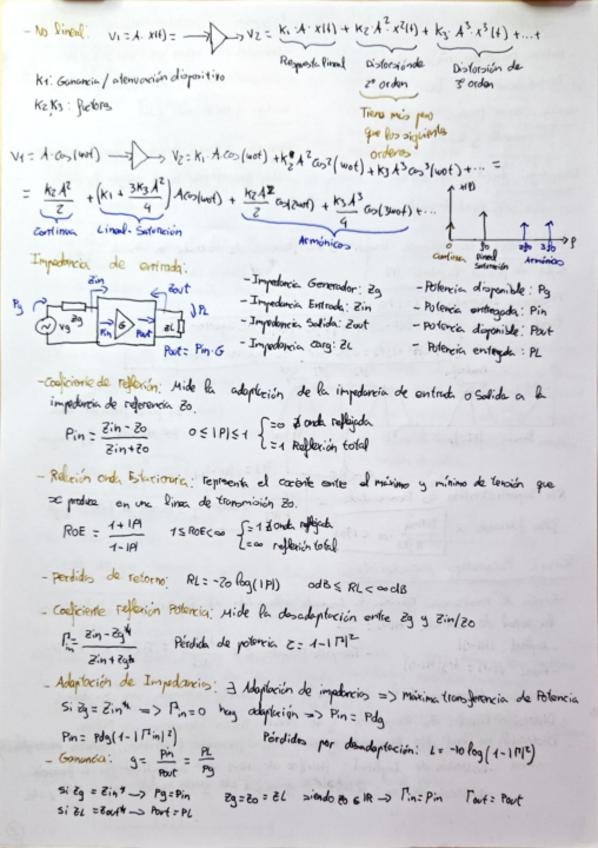 - No lineal: V1 = A·x(t) = → V2 = K1·A·x(t) + K2·A²·x²(t) + K3·A³·x³(t) + ...+
Respuesta lineal Distorsión de 2º orden Distorsión de 3º orden
K1: Ganancia / atenuación dispositivo
K2, K3: factores
Tiene más peso que los siguientes ordenes
V1 = A·cos(wot) → V2 = K1·A·cos(wot) + K2 A² cos²(wot) + K3 A³ cos³(wot) + ... =
= K2A²/2 + (K1 + 3K3A²/4) A cos(wot) + K2A²/2 cos(2wot) + K3A³/4 cos(3wot) + ...
Continua Lineal-Saturación Armónicos
0 fo 2fo 3fo f
continua lineal saturación Armónicos
Impedancia de entrada:
Zin Zout
Pg Zg Vg Pin G Pout ZL PL
Pout = Pin·G
- Impedancia Generador: Zg - Potencia disponible: Pg
- Impedancia Entrada: Zin - Potencia entregada: Pin
- Impedancia Salida: Zout - Potencia disponible: Pout
- Impedancia carg: ZL - Potencia entregada: PL
- Coeficiente de reflexión: Mide la adaptación de la impedancia de entrada o salida a la
impedancia de referencia Zo.
ρin = Zin - Zo / Zin + Zo 0 ≤ |ρ| ≤ 1 { =0 ∄ onda reflejada
=1 Reflexión total
- Relación onda Estacionaria: Representa el cociente entre el máximo y mínimo de tensión que
se produce en una linea de transmisión Zo.
ROE = 1 + |ρ| / 1 - |ρ| 1 ≤ ROE < ∞ { =1 ∄ onda reflejada
=∞ reflexión total
- Perdidas de retorno: RL = -20 log(|ρ|) 0dB ≤ RL < ∞ dB
- Coeficiente reflexión Potencia: Mide la desadaptación entre Zg y Zin/Zo
Γin = Zin - Zg* / Zin + Zg Pérdida de potencia τ = 1 - |Γ|²
- Adaptación de Impedancias: ∃ Adaptación de impedancias => Máxima transferencia de Potencia
Si Zg = Zin* => Γin = 0 hay adaptación => Pin = Pdg
Pin = Pdg(1 - |Γin|²) Pérdidas por desadaptación: L = -10 log(1 - |Γ|²)
- Ganancia: g = Pin / Pout = PL / Pg
Si Zg = Zin* → Pg = Pin Zg = Zo = ZL siendo Zo ∈ ℝ → Γin = ρin Γout = ρout
Si ZL = Zout* → Pout = PL